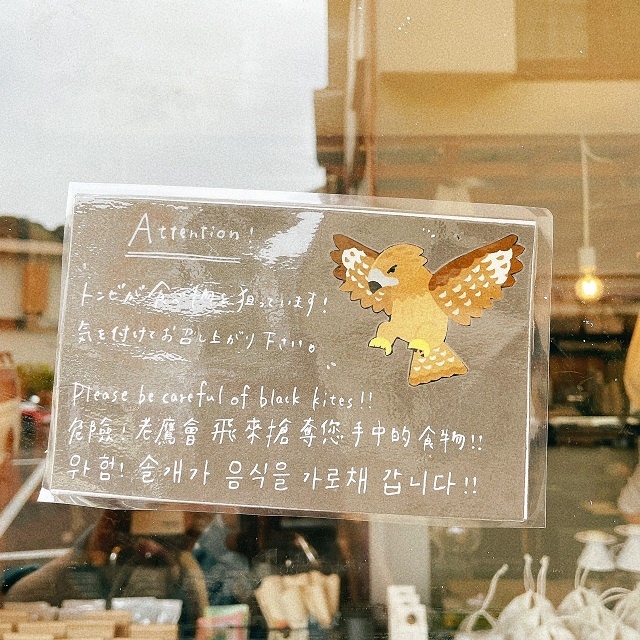 Attention!
トンビが食べ物を狙っています!
気を付けてお召し上がり下さい。
Please be careful of black kites!!
危險!老鷹會飛來搶奪您手中的食物!!
위험! 솔개가 음식을 가로채 갑니다!!